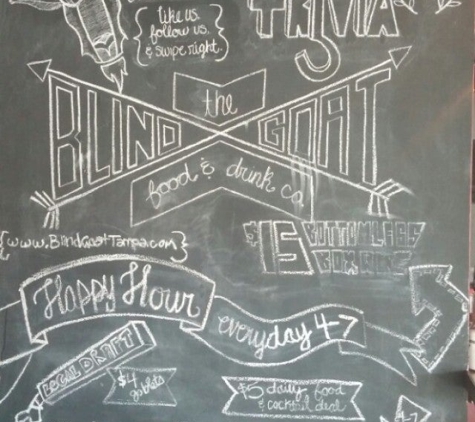 like us
follow us.
& swipe right
TRIVIA
the
BLIND GOAT
food & drink co
{www.BlindGoatTampa.com}
$15 BOTTOMLESS
Happy Hour
everyday 4-7
LOCAL DRAFT
$4
goblets
$5 daily food
& cocktail deal
4-7